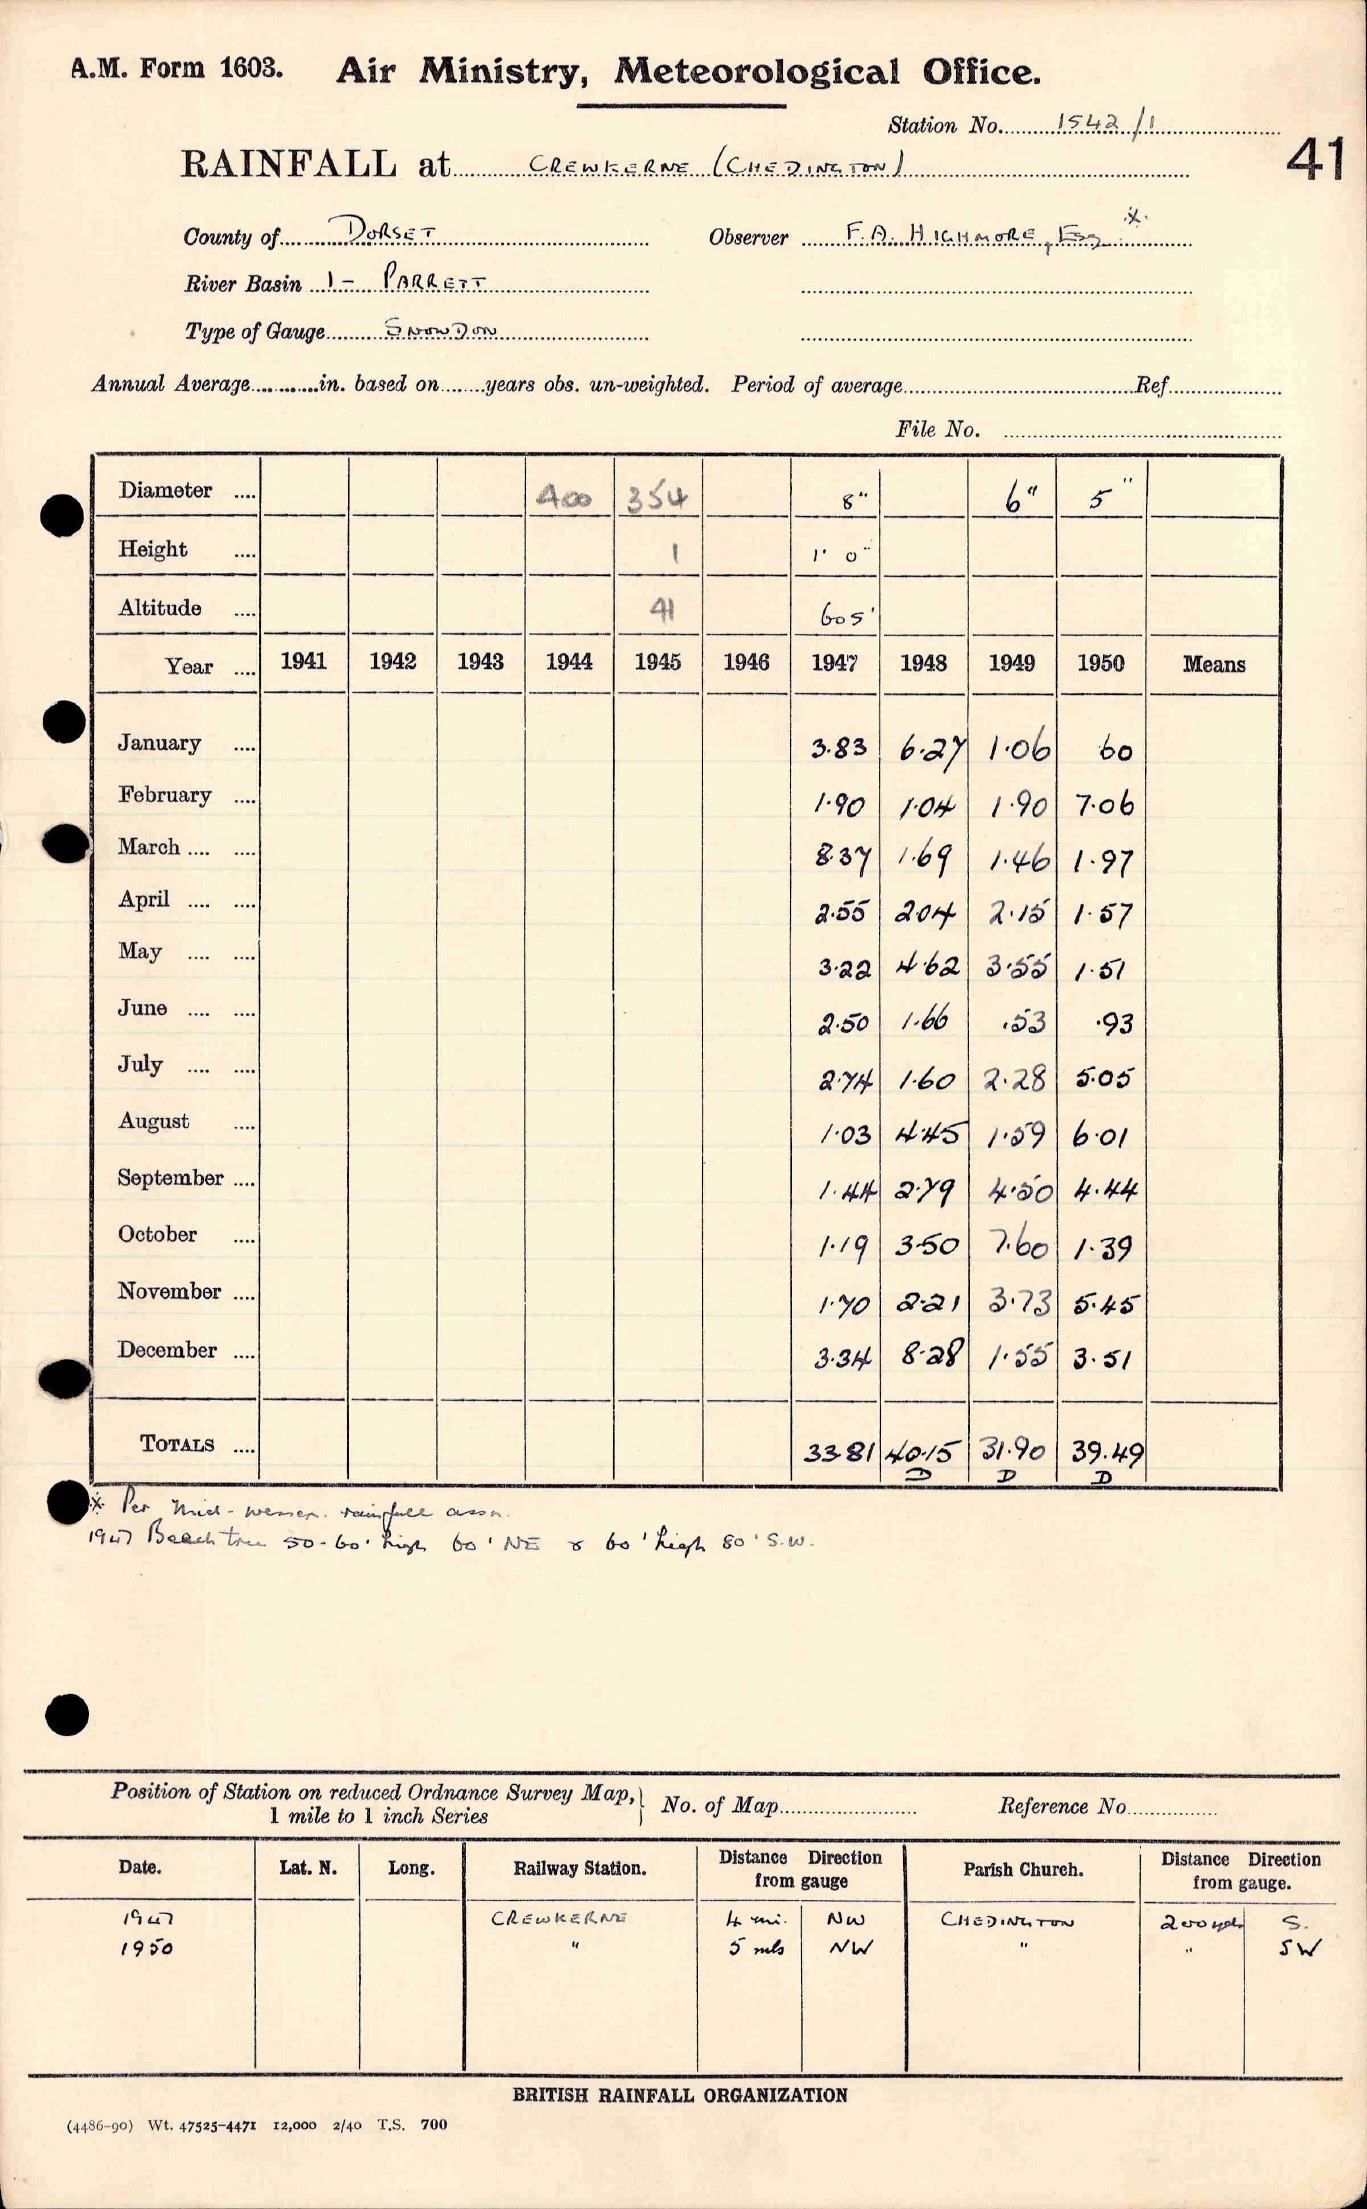 A.M. Form 1603. Air Ministry, Meteorological Office.
Station No. 1542/1
41
RAINFALL at CREWKERNE (CHEDINGTON)
County of DORSET Observer F.A. HIGHMORE, Esq *
River Basin 1 - PARRETT
Type of Gauge SNOWDON
Annual Average............in. based on........years obs. un-weighted. Period of average........Ref........
File No.
Diameter .... 400 354 8" 6" 5"
Height .... 1 1' 0"
Altitude .... 41 605'
Year .... 1941 1942 1943 1944 1945 1946 1947 1948 1949 1950 Means
January .... 3.83 6.27 1.06 60
February .... 1.90 1.04 1.90 7.06
March .... .... 8.37 1.69 1.46 1.97
April .... .... 2.55 2.04 2.15 1.57
May .... .... 3.22 4.62 3.55 1.51
June .... .... 2.50 1.66 .53 .93
July .... .... 2.74 1.60 2.28 5.05
August .... 1.03 4.45 1.59 6.01
September .... 1.44 2.79 4.50 4.44
October .... 1.19 3.50 7.60 1.39
November .... 1.70 2.21 3.73 5.45
December .... 3.34 8.28 1.55 3.51
TOTALS .... 33.81 40.15 31.90 39.49
D D D
* Per Mid-wessex. rainfall assn.
1947 Beech tree 50-60' high 60' NE & 60' high 80' S.W.
Position of Station on reduced Ordnance Survey Map, } No. of Map.......... Reference No..........
1 mile to 1 inch Series
Date. Lat. N. Long. Railway Station. Distance from gauge Direction Parish Church. Distance from gauge. Direction
1947 CREWKERNE 4 mi. NW CHEDINGTON 200 yds S.
1950 " 5 mls NW " " SW
BRITISH RAINFALL ORGANIZATION
(4486-90) Wt. 47525-4471 12,000 2/40 T.S. 700